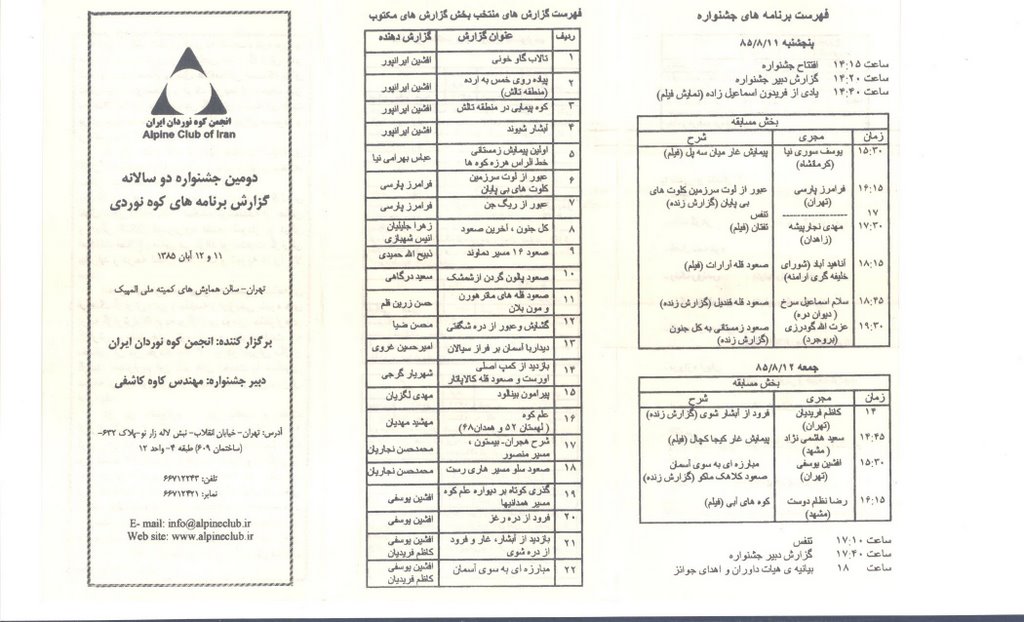 فهرست برنامه های جشنواره
پنجشنبه ۸۵/۸/۱۱
ساعت ۱۴:۱۵ افتتاح جشنواره
ساعت ۱۴:۲۰ گزارش دبیر جشنواره
ساعت ۱۴:۴۰ یادی از فریدون اسماعیل زاده (نمایش فیلم)
بخش مسابقه
زمان مجری شرح
۱۵:۳۰ یوسف سوری نیا پیمایش غار میان سه پل (فیلم)
(کرمانشاه)
۱۶:۱۵ فرامرز پارسی عبور از لوت سرزمین کلوت های
(تهران) بی پایان (گزارش زنده)
۱۷ ---------------- تنفس
۱۷:۳۰ مهدی نجارپیشه تفتان (فیلم)
(زاهدان)
۱۸:۱۵ آناهید آباد (شورای صعود قله آرارات (فیلم)
خلیفه گری ارامنه)
۱۸:۴۵ سلام اسماعیل سرخ صعود قله قندیل (گزارش زنده)
( دیوان دره)
۱۹:۳۰ عزت الله گودرزی صعود زمستانی به کل جنون
(بروجرد) (گزارش زنده)
جمعه ۸۵/۸/۱۲
بخش مسابقه
زمان مجری شرح
۱۴ کاظم فریدیان فرود از آبشار شوی (گزارش زنده)
(تهران)
۱۴:۴۵ سعید هاشمی نژاد پیمایش غار کیجا کچال (فیلم)
( مشهد)
۱۵:۳۰ افشین یوسفی مبارزه ای به سوی آسمان
(تهران) صعود کلاهک ماکو (گزارش زنده)
۱۶:۱۵ رضا نظام دوست کوه های آبی (فیلم)
(مشهد)
ساعت ۱۷:۱۰ تنفس
ساعت ۱۷:۴۰ گزارش دبیر جشنواره
ساعت ۱۸ بیانیه ی هیات داوران و اهدای جوائز
فهرست گزارش های منتخب بخش گزارش های مکتوب
ردیف عنوان گزارش گزارش دهنده
۱ تالاب گاو خونی افشین ایرانپور
۲ پیاده روی خمس به ارده افشین ایرانپور
(منطقه تالش)
۳ کوه پیمایی در منطقه تالش افشین ایرانپور
۴ آبشار شیوند افشین ایرانپور
۵ اولین پیمایش زمستانی عباس بهرامی نیا
خط الراس هرزه کوه ها
۶ عبور از لوت سرزمین فرامرز پارسی
کلوت های بی پایان
۷ عبور از ریگ جن فرامرز پارسی
۸ کل جنون ، آخرین صعود زهرا جلیلیان
انیس شهبازی
۹ صعود ۱۶ مسیر دماوند ذبیح الله حمیدی
۱۰ صعود پالون گردن ازشمشک سعید درگاهی
۱۱ صعود قله های ماترهورن حسن زرین قلم
و مون بلان
۱۲ گشایش و عبور از دره شگفتی محسن ضیا
۱۳ دیدارباآسمان بر فراز سیالان امیرحسین غروی
۱۴ بازدید از کمپ اصلی شهریار گرجی
اورست و صعود قله کالاپاتار
۱۵ پیرامون بینالود مهدی لگزیان
۱۶ علم کوه مهشید مهدیان
( لهستان ۵۲ و همدان۶۸)
۱۷ شرح هجران- بیستون ، محمدحسن نجاریان
مسیر منصور
۱۸ صعود سلو مسیر هاری رست محمدحسن نجاریان
۱۹ گذری کوتاه بر دیواره علم کوه افشین یوسفی
مسیر همدانیها
۲۰ فرود از دره رغز افشین یوسفی
۲۱ بازدید از آبشار، غار و فرود افشین یوسفی
از دره شوی کاظم فریدیان
۲۲ مبارزه ای به سوی آسمان افشین یوسفی
کاظم فریدیان
انجمن کوه نوردان ایران
Alpine Club of Iran
دومین جشنواره دو سالانه
گزارش برنامه های کوه نوردی
۱۱ و ۱۲ آبان ۱۳۸۵
تهران- سالن همایش های کمیته ملی المپیک
برگزار کننده: انجمن کوه نوردان ایران
دبیر جشنواره: مهندس کاوه کاشفی
آدرس: تهران- خیابان انقلاب- نبش لاله زار نو-پلاک ۶۳۲-
(ساختمان ۶۰۹) طبقه ۴- واحد ۱۲
تلفن: ۶۶۷۱۲۲۴۳
نمابر: ۶۶۷۱۲۴۲۱
E- mail: info@alpineclub.ir
Web site: www.alpineclub.ir